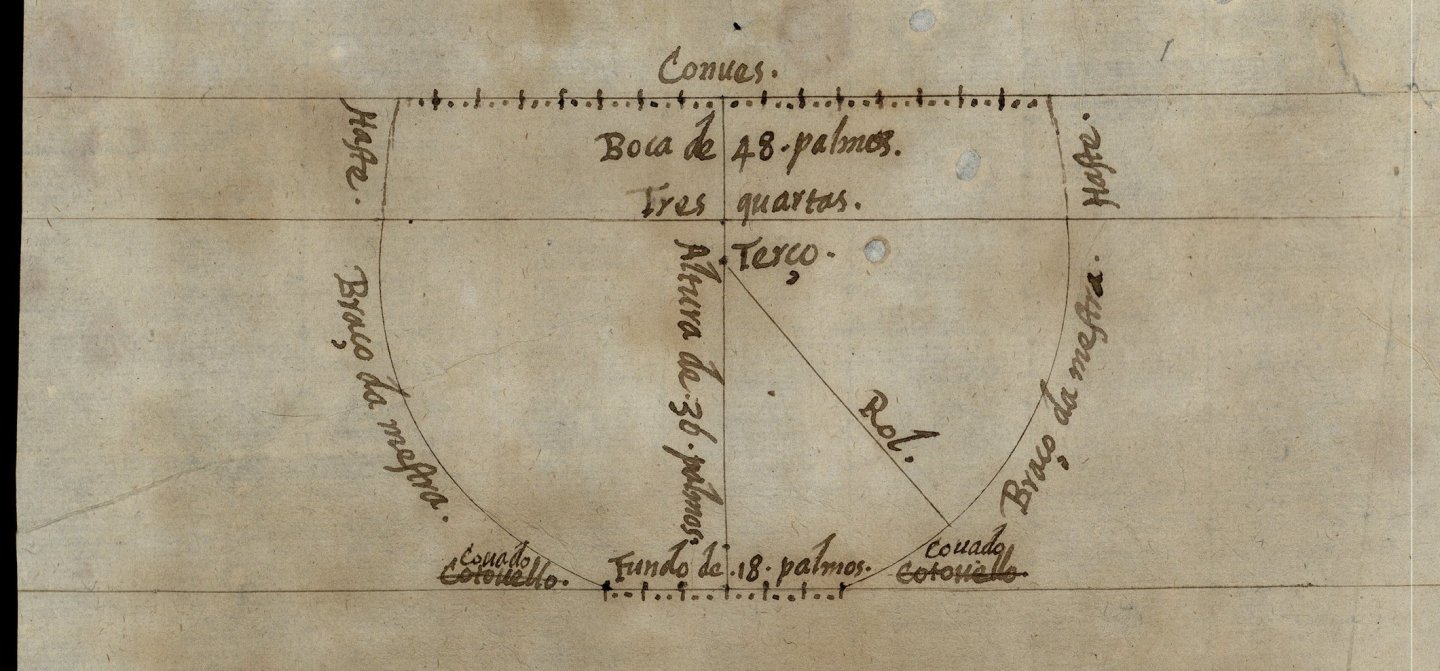 Conues.
Haste.
Haste.
Boca de 48. palmos.
Tres quartas.
Terço.
Altura de. 36. palmos.
Braço da mestra.
Braço da mestra.
Rol.
Couado
Cotouello.
Fundo de .18. palmos.
Couado
Cotouello.